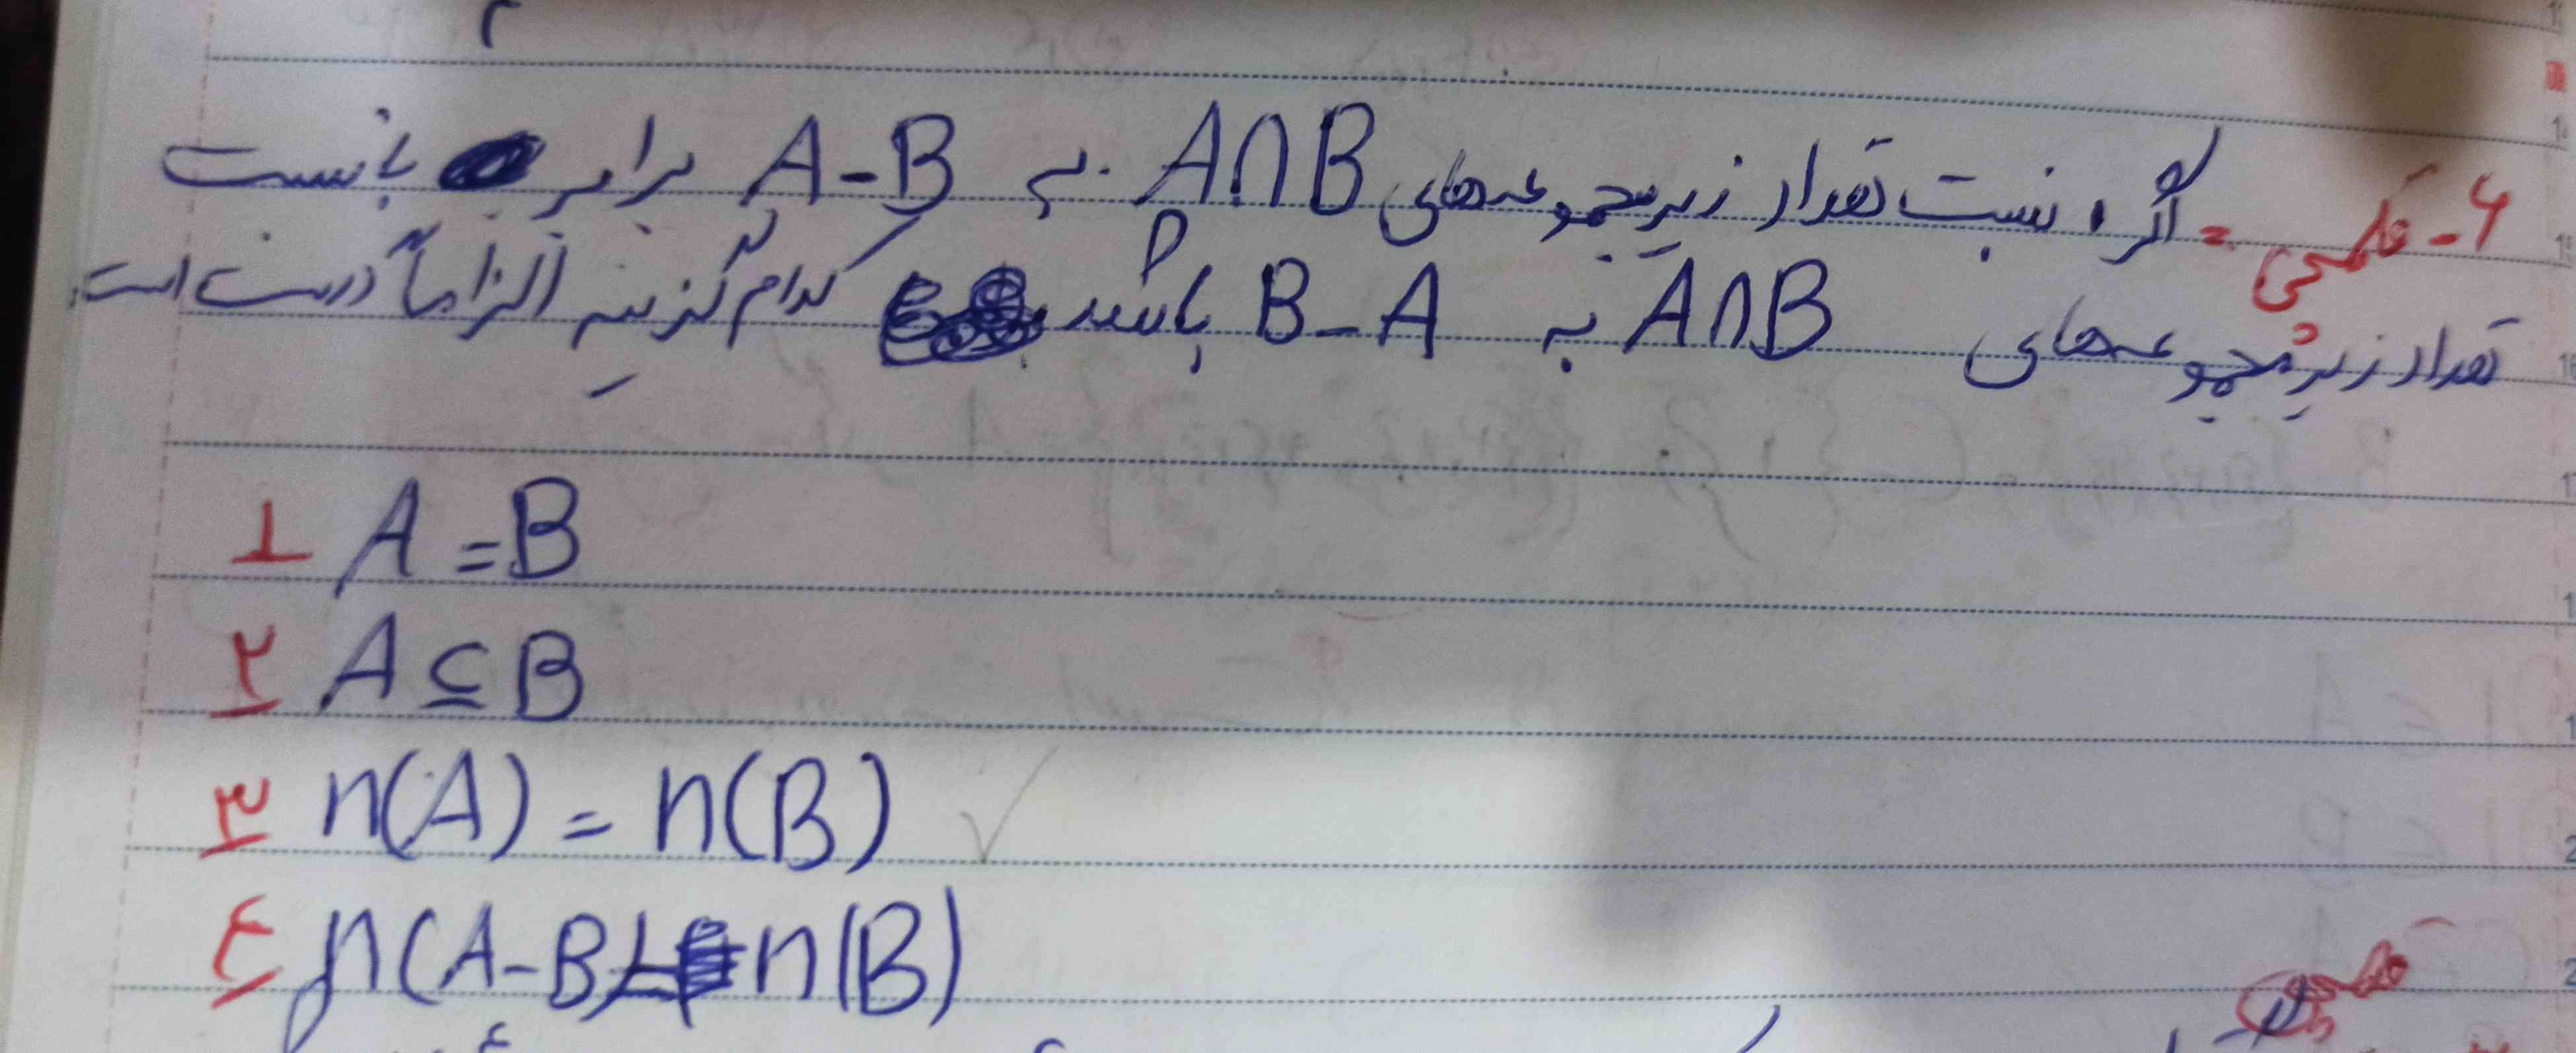 ۶- قلمچی = اگر نسبت تعداد زیرمجموعه‌های A∩B به A-B برابر با نسبت
تعداد زیرمجموعه‌های A∩B به B-A باشد کدام گزینه الزاماً درست است؟
۱ A=B
۲ A⊆B
۳ n(A) = n(B) ✓
۴ n(A-B) n(B)